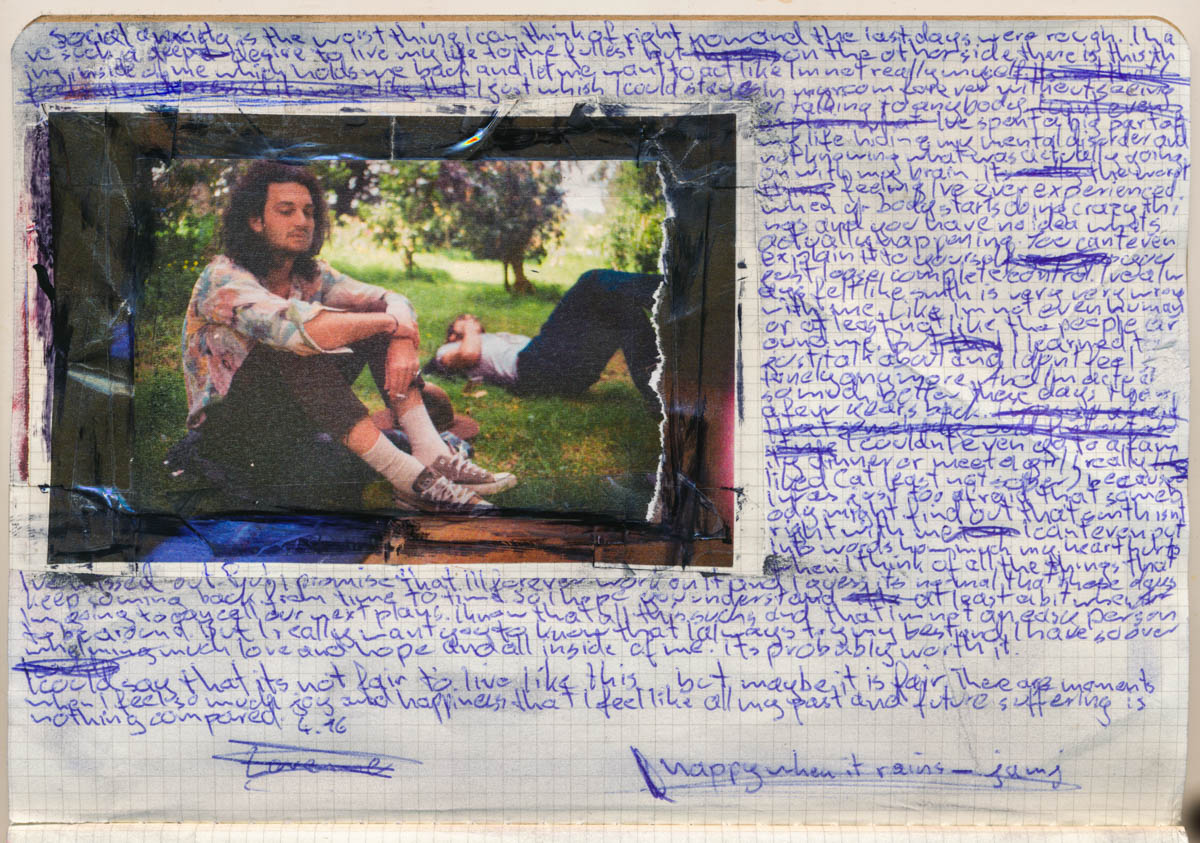 Social anxiety is the worst thing i can think of right now and the last days were rough. I ha
ve such a deep desire to live my life to the fullest but on the other side there is this th
ing inside of me which holds me back and let me want to act like I'm not really myself
that I just whish I could stay in my room forever without seeing
or talking to anybody
I've spent a big part of
my life hiding my mental disorder and
not knowing what was actually going
on with my brain. it's the worst
feeling I've ever experienced
when y. body starts doing crazy thi
ngs and you have no idea what's
actually happening. You can't even
explain it to yourself
just loose complete control. I real
felt like smth is very very wrong
with me. Like I'm not even human
or at least not like the people ar
ound me but I learned t
just talk about and I don't feel
lonely anymore. And I'm actual
so much better these days then
a few years back
I couldn't even go to a fam
ily dinner or meet a girl I really
liked (at least not sober) because
I was just too afraid that someb
ody might find out that smth isn't
right with me I can't even put
into words how much my heart hurts
when I think of all the things that
I've missed out but I promise that ill forever work on it and layers its normal that those days
keep coming back from time to time so I hope you understand at least a bit when
I'm going to cancel our next plans. I know that all this sucks and that I'm not an easy person
to be around but I really want you to know that I always try my best and I have so over
whelming much love and hope and all inside of me. it's probably worth it.
I could say that its not fair to live like this but maybe it is fair. There are moments
when I feel so much joy and happiness that I feel like all my past and future suffering is
nothing compared. 4.16
Love me
happy when it rains – jamj